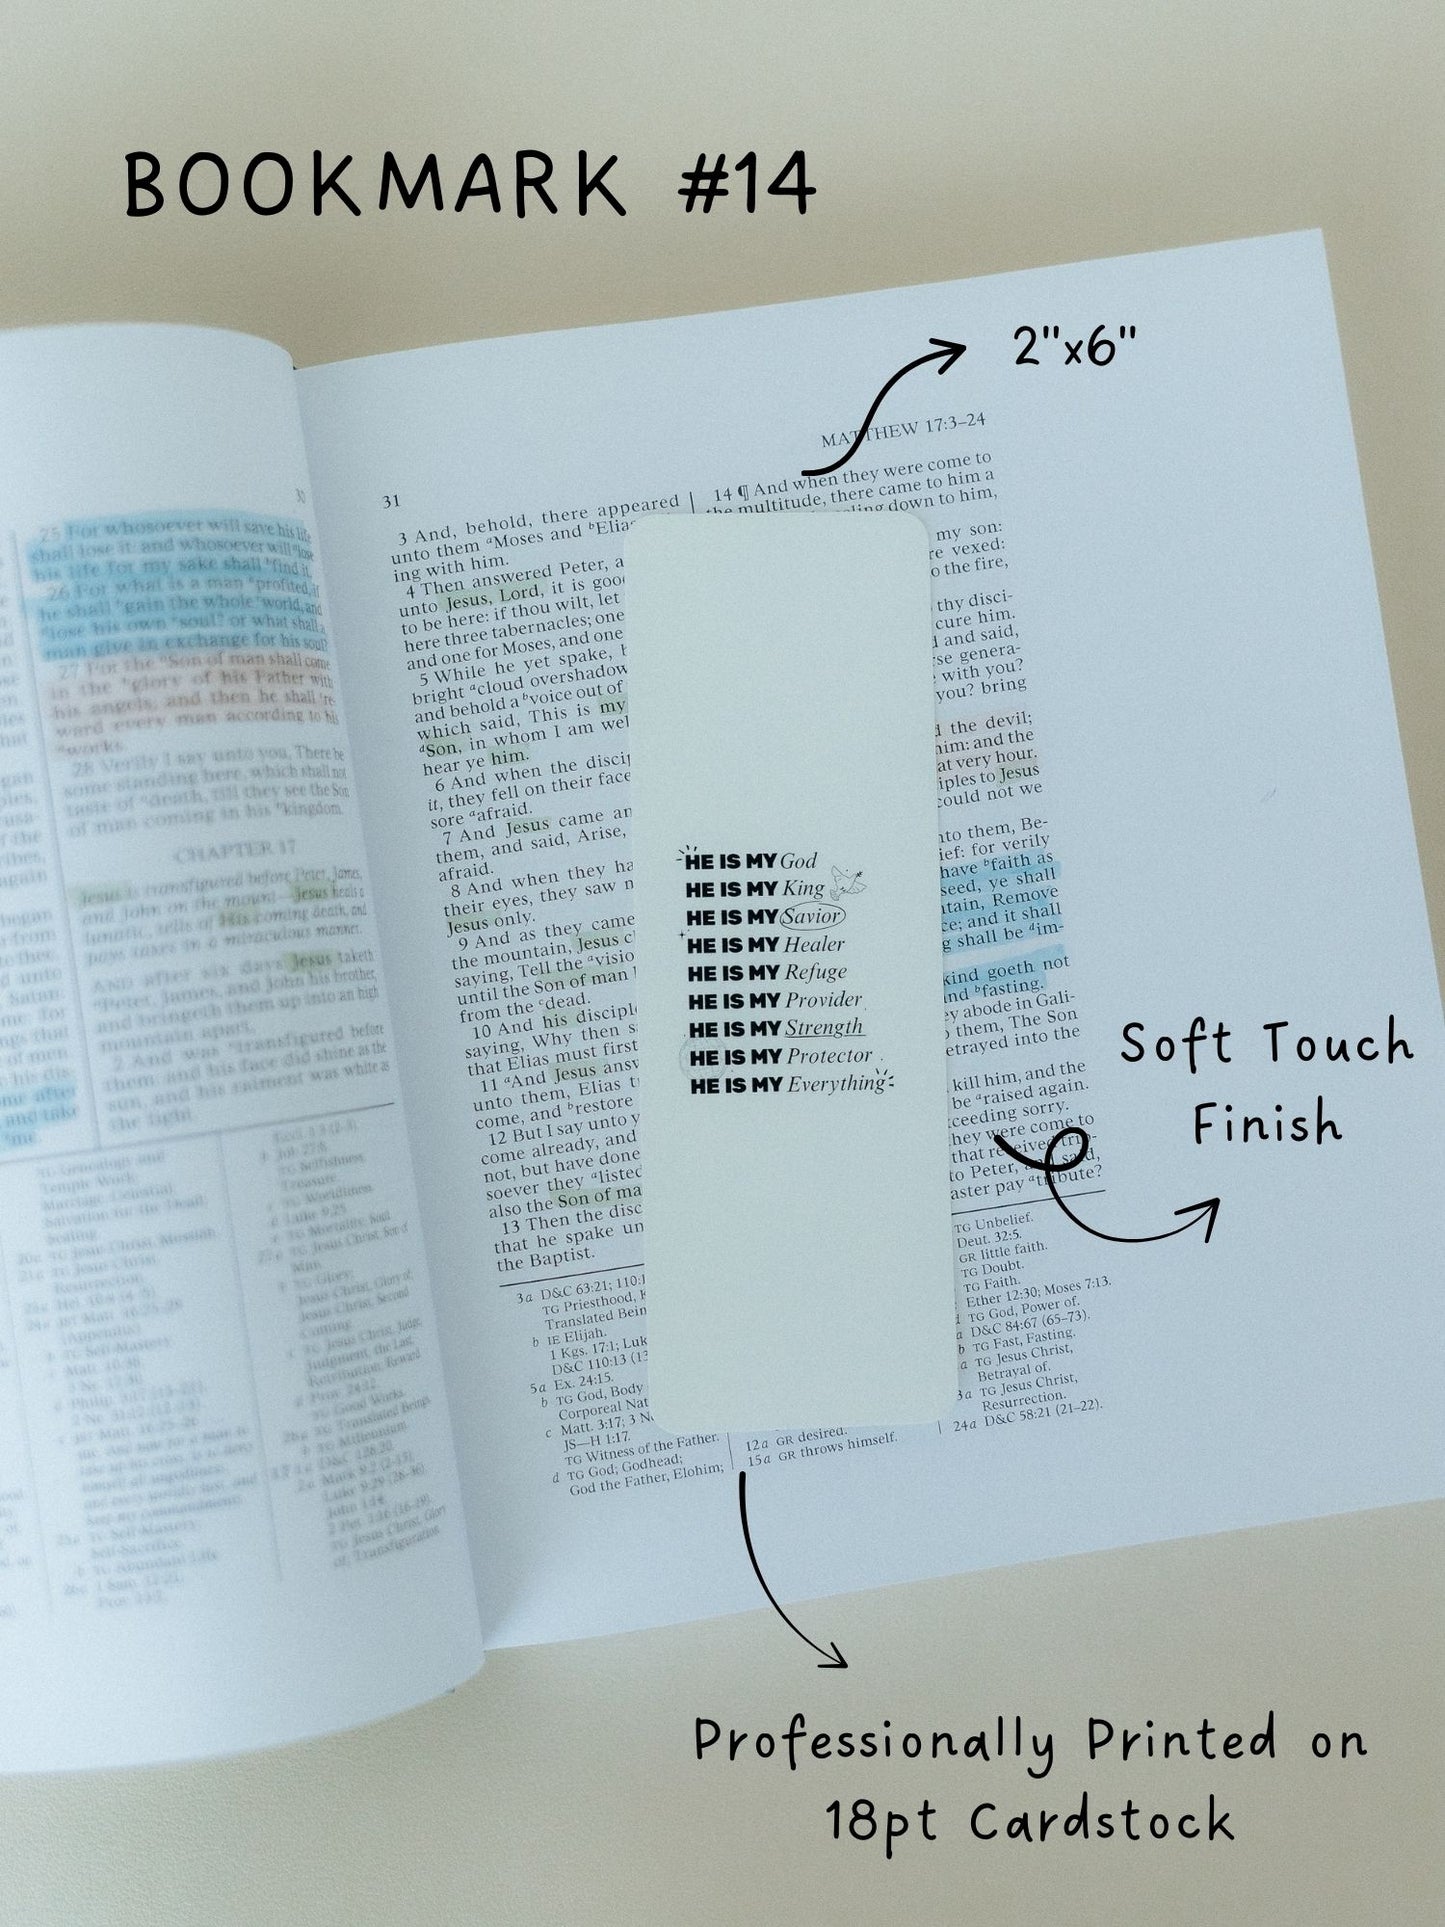 BOOKMARK #14
2"x6"
MATTHEW 17:3–24
31
3 And, behold, there appeared
unto them ᵃMoses and ᵇElias
ing with him.
4 Then answered Peter, a
unto Jesus, Lord, it is good
to be here: if thou wilt, let
here three tabernacles; one
and one for Moses, and one
5 While he yet spake, b
bright ᵃcloud overshadow
and behold a ᵇvoice out of
which said, This is my
ᵈSon, in whom I am wel
hear ye him.
6 And when the discip
it, they fell on their face
sore ᵃafraid.
7 And Jesus came an
them, and said, Arise,
afraid.
8 And when they ha
their eyes, they saw n
Jesus only.
9 And as they came
the mountain, Jesus c
saying, Tell the ᵃvisio
until the Son of man
from the ᶜdead.
10 And his discipl
saying, Why then s
that Elias must first
11 ᵃAnd Jesus answ
unto them, Elias t
come, and ᵇrestore
12 But I say unto y
come already, and
not, but have done
soever they ᵃlisted
also the Son of ma
13 Then the disc
that he spake un
the Baptist.
3a D&C 63:21; 110:1
TG Priesthood, K
Translated Bein
b IE Elijah.
1 Kgs. 17:1; Luk
D&C 110:13 (13
5a Ex. 24:15.
b TG God, Body
Corporeal Nat
c Matt. 3:17; 3 N
JS—H 1:17.
TG Witness of the Father.
d TG God; Godhead;
God the Father, Elohim;
14 ¶ And when they were come to
the multitude, there came to him a
ling down to him,
my son:
re vexed:
o the fire,
thy disci-
cure him.
d and said,
se genera-
with you?
you? bring
d the devil;
him: and the
at very hour.
iples to Jesus
could not we
nto them, Be-
ief: for verily
have ᵇfaith as
seed, ye shall
ntain, Remove
ce; and it shall
g shall be ᵈim-
kind goeth not
nd ᵇfasting.
ey abode in Gali-
o them, The Son
etrayed into the
kill him, and the
be ᵃraised again.
ceeding sorry.
hey were come to
that received trib-
to Peter, and said,
aster pay ᵃtribute?
TG Unbelief.
Deut. 32:5.
GR little faith.
TG Doubt.
TG Faith.
Ether 12:30; Moses 7:13.
TG God, Power of.
a D&C 84:67 (65–73).
b TG Fast, Fasting.
a TG Jesus Christ,
Betrayal of.
3a TG Jesus Christ,
Resurrection.
24a D&C 58:21 (21–22).
12a GR desired.
15a GR throws himself.
HE IS MY God
HE IS MY King
HE IS MY Savior
HE IS MY Healer
HE IS MY Refuge
HE IS MY Provider
HE IS MY Strength
HE IS MY Protector
HE IS MY Everything
30
25 For whosoever will save his life
shall lose it: and whosoever will ᵃlose
his life for my sake shall ᵇfind it.
26 For what is a man ᵃprofited, if
he shall ᵇgain the whole ᶜworld, and
ᵈlose his own ᵉsoul? or what shall a
man give in exchange for his soul?
27 For the ᵃSon of man shall come
in the ᵇglory of his Father with
his angels, and then he shall ᶜre-
ward every man according to his
ᵈworks.
28 Verily I say unto you, There be
some standing here, which shall not
taste of ᵃdeath, till they see the Son
of man coming in his ᵇkingdom.
CHAPTER 17
Jesus is transfigured before Peter, James,
and John on the mount—Jesus heals a
lunatic, tells of His coming death, and
pays taxes in a miraculous manner.
AND after six days Jesus taketh
ᵃPeter, James, and John his brother,
and bringeth them up into an high
mountain apart,
2 And was ᵃtransfigured before
them: and his face did shine as the
sun, and his raiment was white as
the light.
Soft Touch
Finish
Professionally Printed on
18pt Cardstock